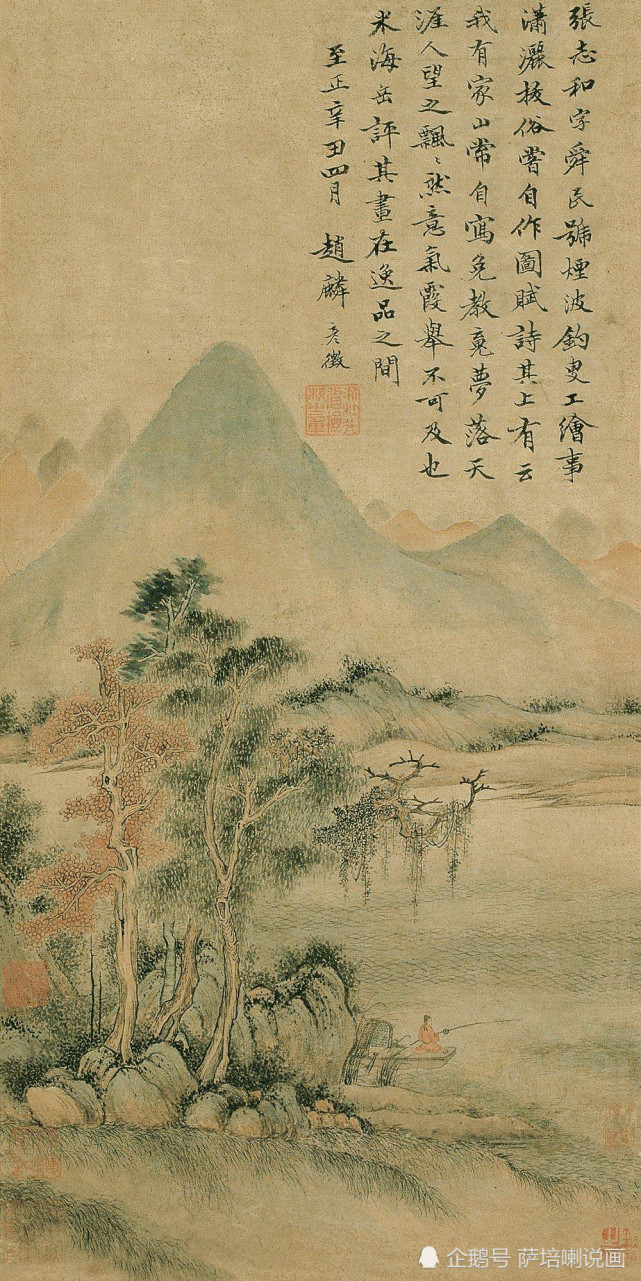 張志和字舜民號煙波釣叟工繪事
瀟灑拔俗嘗自作圖賦詩其上有云
我有家山常自寫免教魂夢落天
涯人望之飄〻然意氣霞舉不可及也
米海岳評其畫在逸品之間
至正辛丑四月 趙麟 彥徵
企鹅号 萨培喇说画